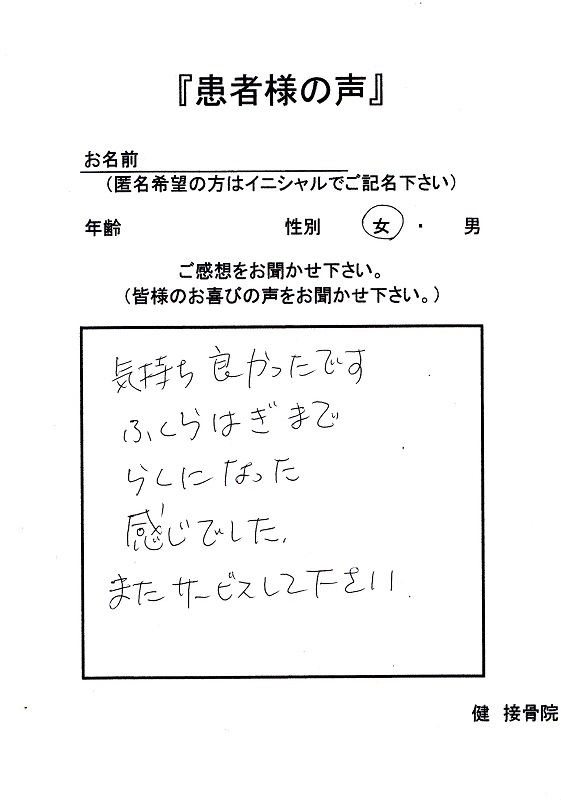 『患者様の声』
お名前
（匿名希望の方はイニシャルでご記名下さい）
年齢 性別 女 ・ 男
ご感想をお聞かせ下さい。
（皆様のお喜びの声をお聞かせ下さい。）
気持ち良かったです
ふくらはぎまで
らくになった
感じでした.
またサービスして下さい.
健 接骨院